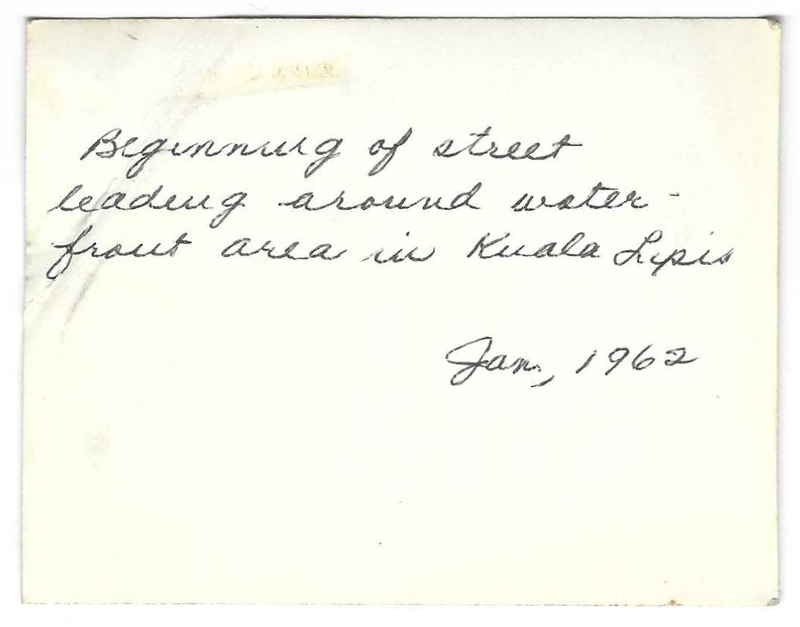 Beginning of street
leading around water-
front area in Kuala Lipis
Jan, 1962